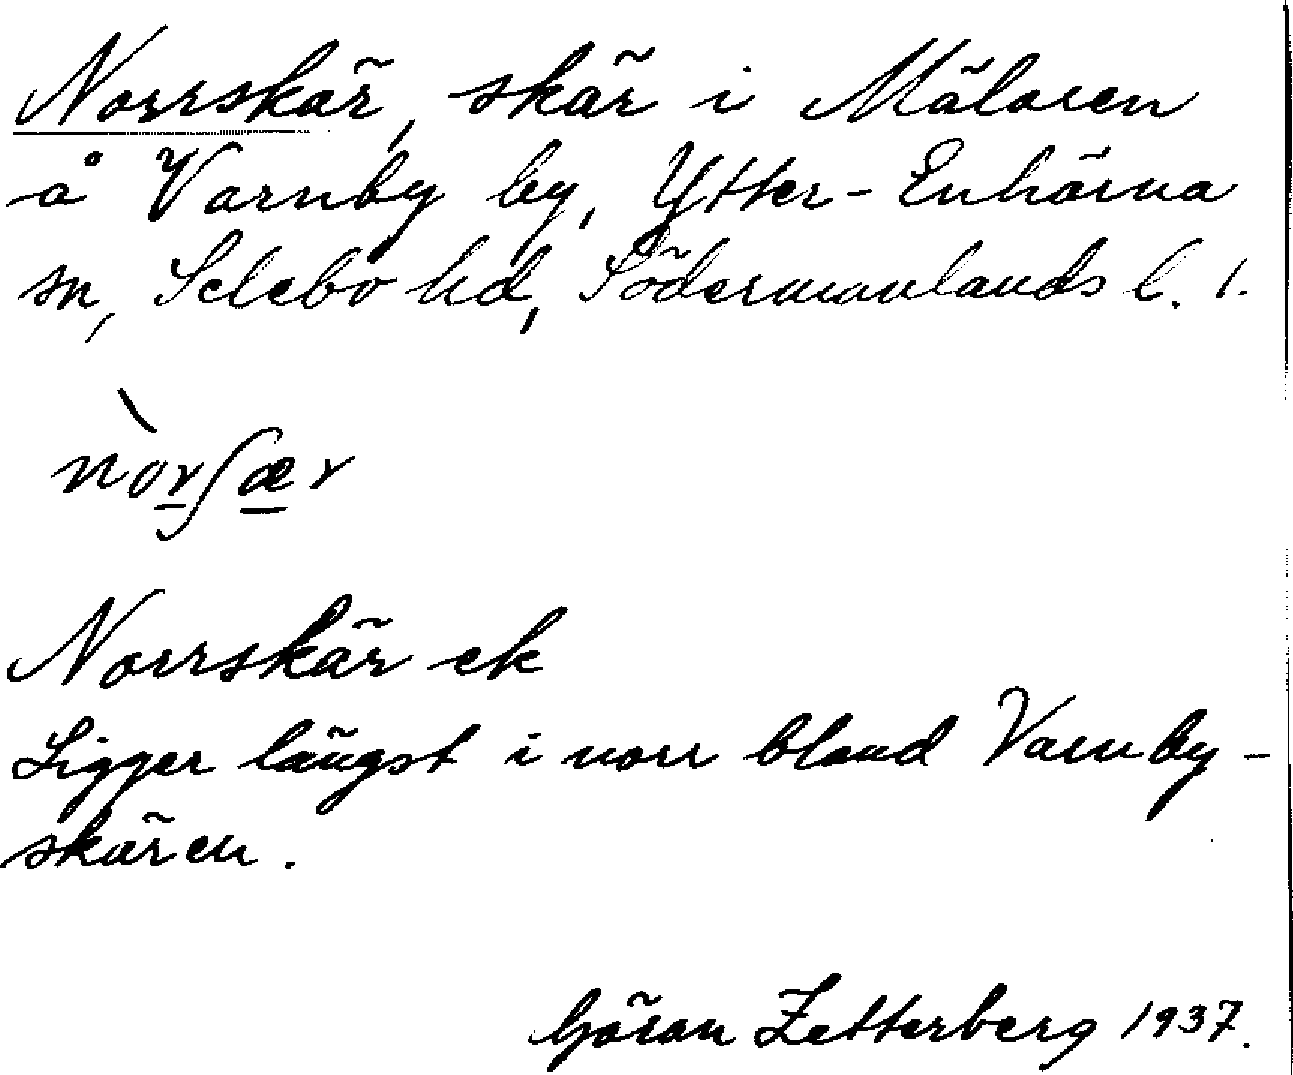 Norrskär, skär i Mälaren
å Varnby by, Ytter-Enhörna
sn, Selebo hd, Södermanlands l. l.
nòrʃær
Norrskär ek
Ligger längst i norr bland Varnby-
skären.
Göran Zetterberg 1937.